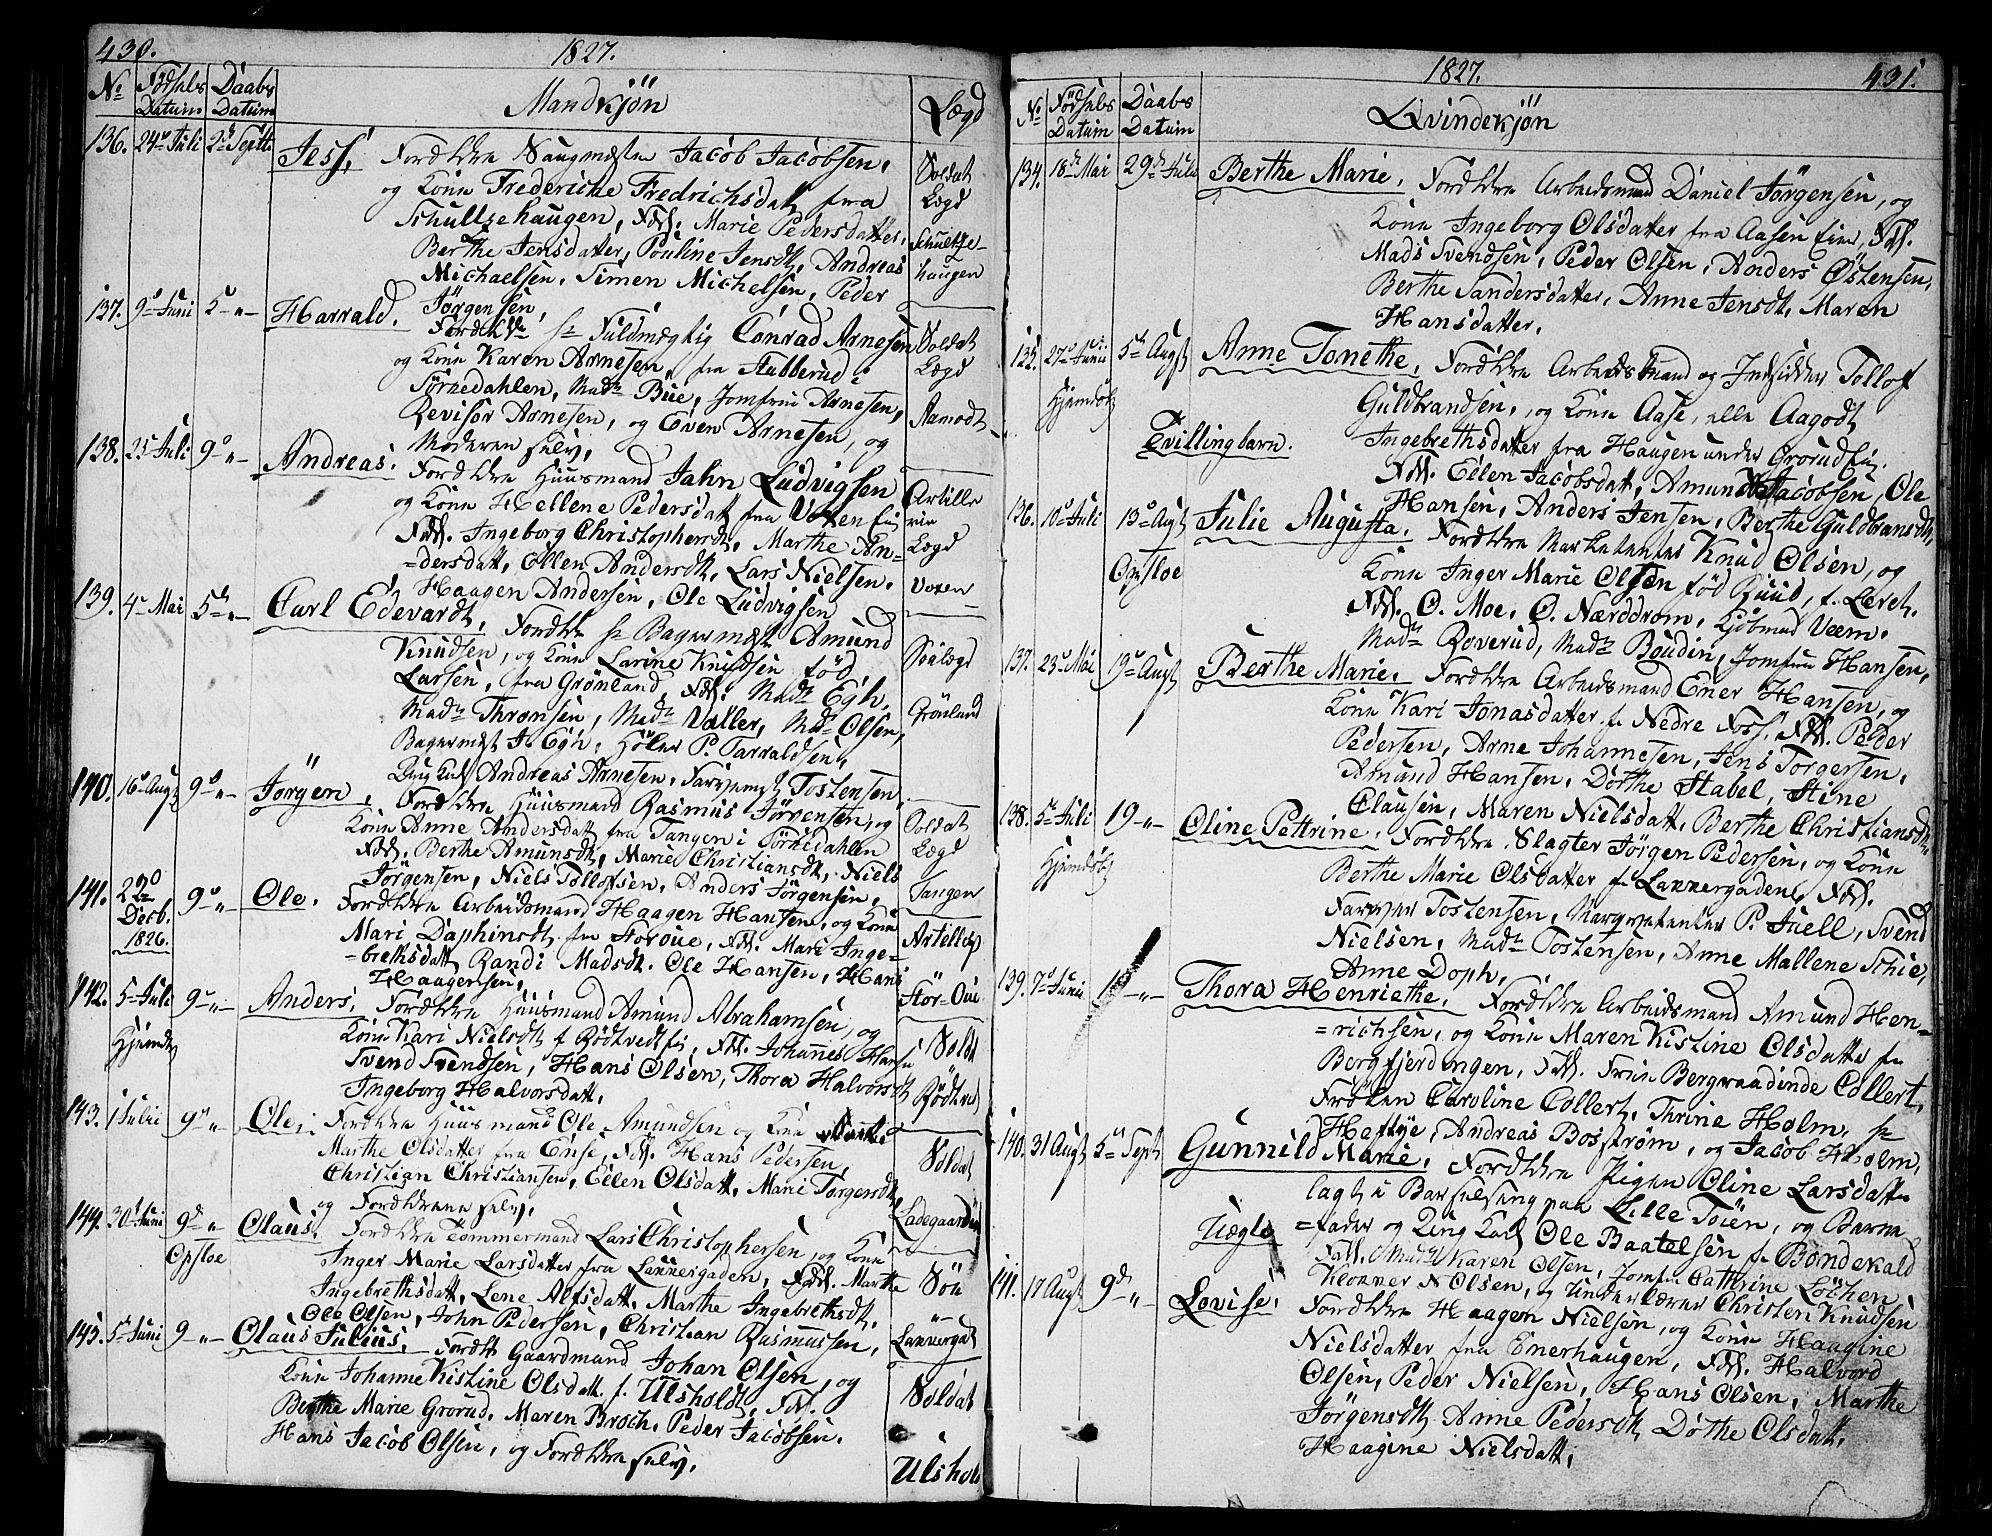 430.
1827.
No Fødsels Datum Daabs Datum Mandkjön Lægd
136. 24de Juli 2den Septb. Jess, Forældre Saugmester Jacob Jacobsen,
og Kone Frederiche Fredrichsdatt fra
Schultzehaugen, Fdd. Marie Pedersdatter,
Berthe Jensdatter, Pouline Jensdt, Andreas
Michaelsen, Simen Michelsen, Peder
Jörgensen,
Soldat
Lægd
Schultze-
haugen
137. 9de Juni 5te " Harrald. Forældre Sr Fuldmægtig Conrad Arnesen
og Kone Karen Arnesen, fra Stubberud i
Sörkedahlen, Mad. Bue, Jomfrue Arnesen,
Revisor Arnesen, og Even Arnesen, og
Moderen selv,
Soldat
Lægd
Aamodt
138. 25 Juli 9de " Andreas. Forældre Huusmand Jahn Ludvigsen
og Kone Hellene Pedersdatt fra Voxen Eie
Fdd. Ingeborg Christophersdt, Marthe An-
=dersdatt, Ellen Andersdt, Lars Nielsen,
Haagen Andersen, Ole Ludvigsen
Artille
rie
Lægd
Voxen
139. 4de Mai 5te " Carl Edevardt, Forældre Sr Bagermester Amund
Knudsen, og Kone Larine Knudsen fød
Larsen, fra Grönland, Fdd. Mad. Egh,
Mad. Thronsen, Mad. Valler, Md. Olsen,
Bagermest J. Egh, Høker P. Tarraldsen,
Ung Karl Andreas Arnesen, Farvemest Tostensen
Söelægd
Grönland
140. 16de Augt 9de " Jörgen, Forældre Huusmand Rasmus Jörgensen, og
Kone Anne Andersdatt fra Tangen i Sörkedahlen
Fdd. Berthe Amunsdt, Marie Christiansdt, Niels
Jörgensen, Niels Tollofsen, Anders Jörgensen,
Soldat
Lægd
Tangen
141. 22de Decb. 1826. 9de " Ole. Forældre Arbeidsmand Haagen Hansen, og Kone
Mari Daphinsdt fra Storöue, Fdd. Mari Inge-
=brethsdatt, Randi Madsdt. Ole Hansen, Hans
Haagensen,
Stor-Öue
142. 5te Juli 9de " Anders, Forældre Huusmand Amund Abrahamsen, og
Kone Kari Nielsdt f Rödtvedt Ei, Fdd. Johannes Hansen
Svend Svendsen, Hans Olsen, Thora Halvorsdt
Ingeborg Halvorsdatt,
Soldt
Rödtvet
143. 1 Julii 9de " Ole, Forældre Huusmand Ole Amundsen og Kone
Marthe Olsdatter fra Ense, Fdd. Hans Pedersen,
Christian Christiansen, Ellen Olsdatt, Mari Torgersdt,
og Forældrene selv,
Soldat
Ladegaardsöen
144. 30te Juni 9de " Opsloe Claus, Forældre Tömmermand Lars Christophersen, og Kone
Inger Marie Larsdatter fra Lakkergaden, Fdd. Marthe
Ingebrethsdatt, Lene Alfsdatt, Marthe Ingebrethsdt,
Ole Olsen, John Pedersen, Christian Rasmussen,
Söe
"
Lakkergad
145. 5te Juni 9 " Claus Julius, Forældr Gaardmand Johan Olsen, og
Kone Johanne Kistine Olsdatt f. Ulsholdt, Fdd.
Berthe Marie Grorud, Maren Broch, Peder Jacobsen,
Hans Jacob Olsen, og Forældre selv,
Soldat
i
Ulshol
1827.
431.
No Fødsels Datum Daabs Datum Qvindekjön
134. 18de Mai 29de Juli Berthe Marie, Forældre Arbeidsmand Daniel Jörgensen, og
Kone Ingeborg Olsdatter fra Aasen Eie, Fdd.
Mads Svendsen, Peder Olsen, Anders Östensen,
Berthe Sandersdatter, Anne Jensdt, Maren
Hansdatter,
135. 27de Junii Hjemdöbt 5te Augst Anne Tonethe, Forældre Arbeidsmand og Indsidder Tollof
Guldbrandsen, og Kone Aase, eller Aagodt
Tvillingbarn. Ingebrethsdatter fra Haugen under Grorud Eie,
Fdd. Ellen Jacobsdatt, Amund Jacobsen, Ole
Hansen, Anders Jensen, Berthe Guldbransdt,
136. 10de Juli 13de Augt Opsloe Julie Augusta, Forældre Marketenter Knud Olsen, og
Kone Inger Marie Olsen fød Ruud, f. Leret.
Fdd. O. Moe, O. Nærddrom, Kjöbmd Veem,
Mad. Roverud, Mad. Boudin, Jomfrue Hansen,
137. 23de Mai 19de Augt Berthe Marie, Forældre Arbeidsmand Ener Hansen, og
Kone Kari Jonasdatter f. Nedre Foss, Fdd. Peder
Pedersen, Arne Johannesen, Jens Torgersen,
Amund Hansen, Dorthe Stabel, Stine
Clausen, Maren Nielsdatt, Berthe Christiansdt,
138. 5te Juli Hjemdöbt 19 " Oline Pettrine, Forældre Slagter Jörgen Pedersen, og Kone
Berthe Marie Olsdatter fr Lakkergaden, Fdd.
Farver Tostensen, Marqvetenter P. Juell, Svend
Nielsen, Mad. Tostensen, Anne Mallene Schie,
Anne Doph,
139. 7de Junii 19 " Thora Henriethe, Forældre Arbeidsmand Amund Hen-
=richsen, og Kone Maren Kistine Olsdatter fr
Bergfjerdingen, Fdd. Frue Bergraadinde Collert,
Frøken Caroline Collert, Thrine Holm, Sr
Heftye, Andreas Boström, og Jacob Holm,
140. 31 Augt 5te Sept Gunnild Marie, Forældre Pigen Oline Larsdatter
lagt i Barselseng paa Lille Töien, og Barne
Uægte =fader og Ung Karl Ole Baatelsen f. Bondekald
Fdd. Mad. Karen Olsen, Jomfru Cathrine Löchen,
Klokker N Olsen, og Underlærer Christen Knudsen
141. 17 Augt 9de " Lovise, Forældre Haagen Nielsen, og Kone Haagine
Nielsdatter fra Enerhaugen, Fdd. Halvord
Olsen, Peder Nielsen, Hans Olsen, Marthe
Jörgensdt, Anne Pedersdt, Dorthe Olsdatt,
Haagine Nielsdatt,